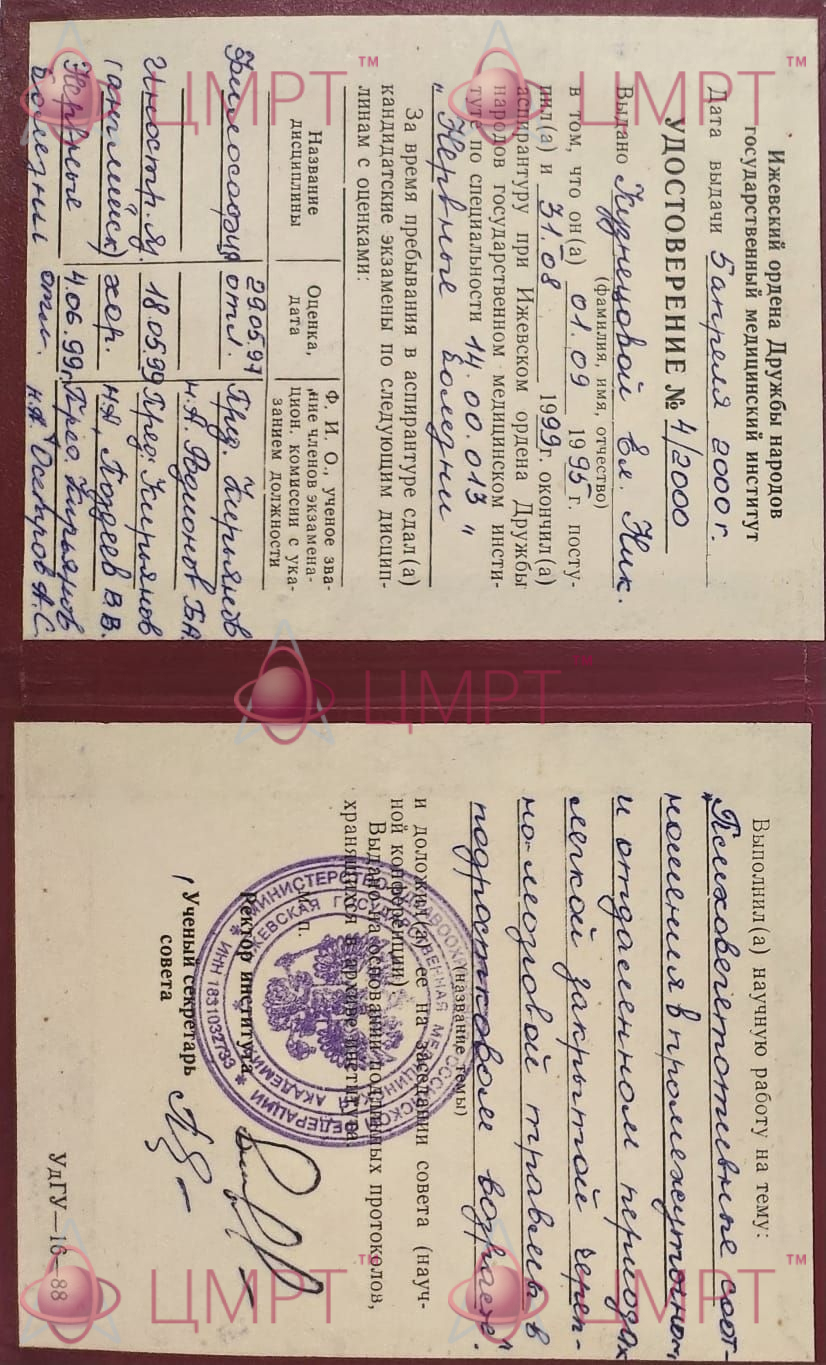 Ижевский ордена Дружбы народов
государственный медицинский институт
Дата выдачи 5 апреля 2000 г.
УДОСТОВЕРЕНИЕ № 4/2000
Выдано Кузнецовой Ел. Ник.
(фамилия, имя, отчество)
в том, что он(а) 01.09 1995 г. посту-
пил(а) и 31-08 1999 г. окончил(а)
аспирантуру при Ижевском ордена Дружбы
народов государственном медицинском инсти-
туте по специальности 14.00.013 "
„ Нервные болезни
За время пребывания в аспирантуре сдал(а)
кандидатские экзамены по следующим дисцип-
линам с оценками:
Название дисциплины
Оценка, дата
Ф. И. О., ученое зва-
ние членов экзамена-
цион. комиссии с ука-
занием должности
29.05.97
Философия отл. Пред. Кирьянов
н.А. Родионов Б.А.
Иностр. яз. 18.05.99 Пред. Кирьянов
(английск) хор. н.А. Поздеев В.В.
Нервные 4.06.99г. Пред. Кирьянов
болезни отл. н.А. Осетров А.С.
Выполнил(а) научную работу на тему:
„Психовегетативные соот-
ношения в промежуточном
и отдаленном периодах
легкой закрытой череп-
но-мозговой травмы в
подростковом возрасте".
(название темы)
и доложил(а) ее на заседании совета (науч-
ной конференции)
Выдано на основании подлинных протоколов,
хранящихся в архиве института
М. п.
Ректор института
Ученый секретарь
совета
УдГУ—16—88
ИНН 1831032733
ЦМРТ™
ЦМРТ™
ЦМРТ™
ЦМРТ™
ЦМРТ™